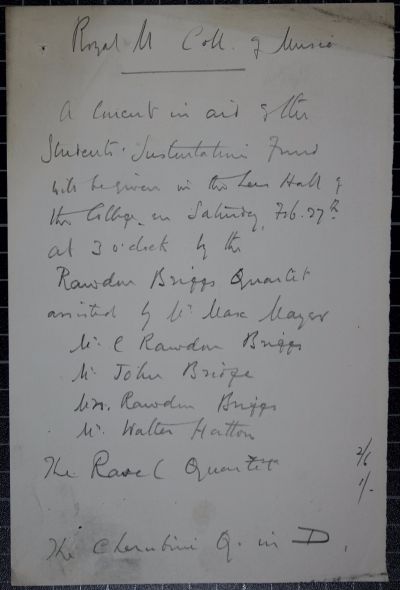 Royal M Coll. of Music
A Concert in aid of the
Students' Sustentation Fund
will be given in the Lees Hall of
the College on Saturday, Feb. 27th
at 3 o'clock by the
Rawdon Briggs Quartet
assisted by Mr Max Mayer
Mr. C Rawdon Briggs
Mr John Bridge
Mrs. Rawdon Briggs
Mr. Walter Hatton
The Ravel Quartet
2/6
1/-
The Cherubini Q. in D.